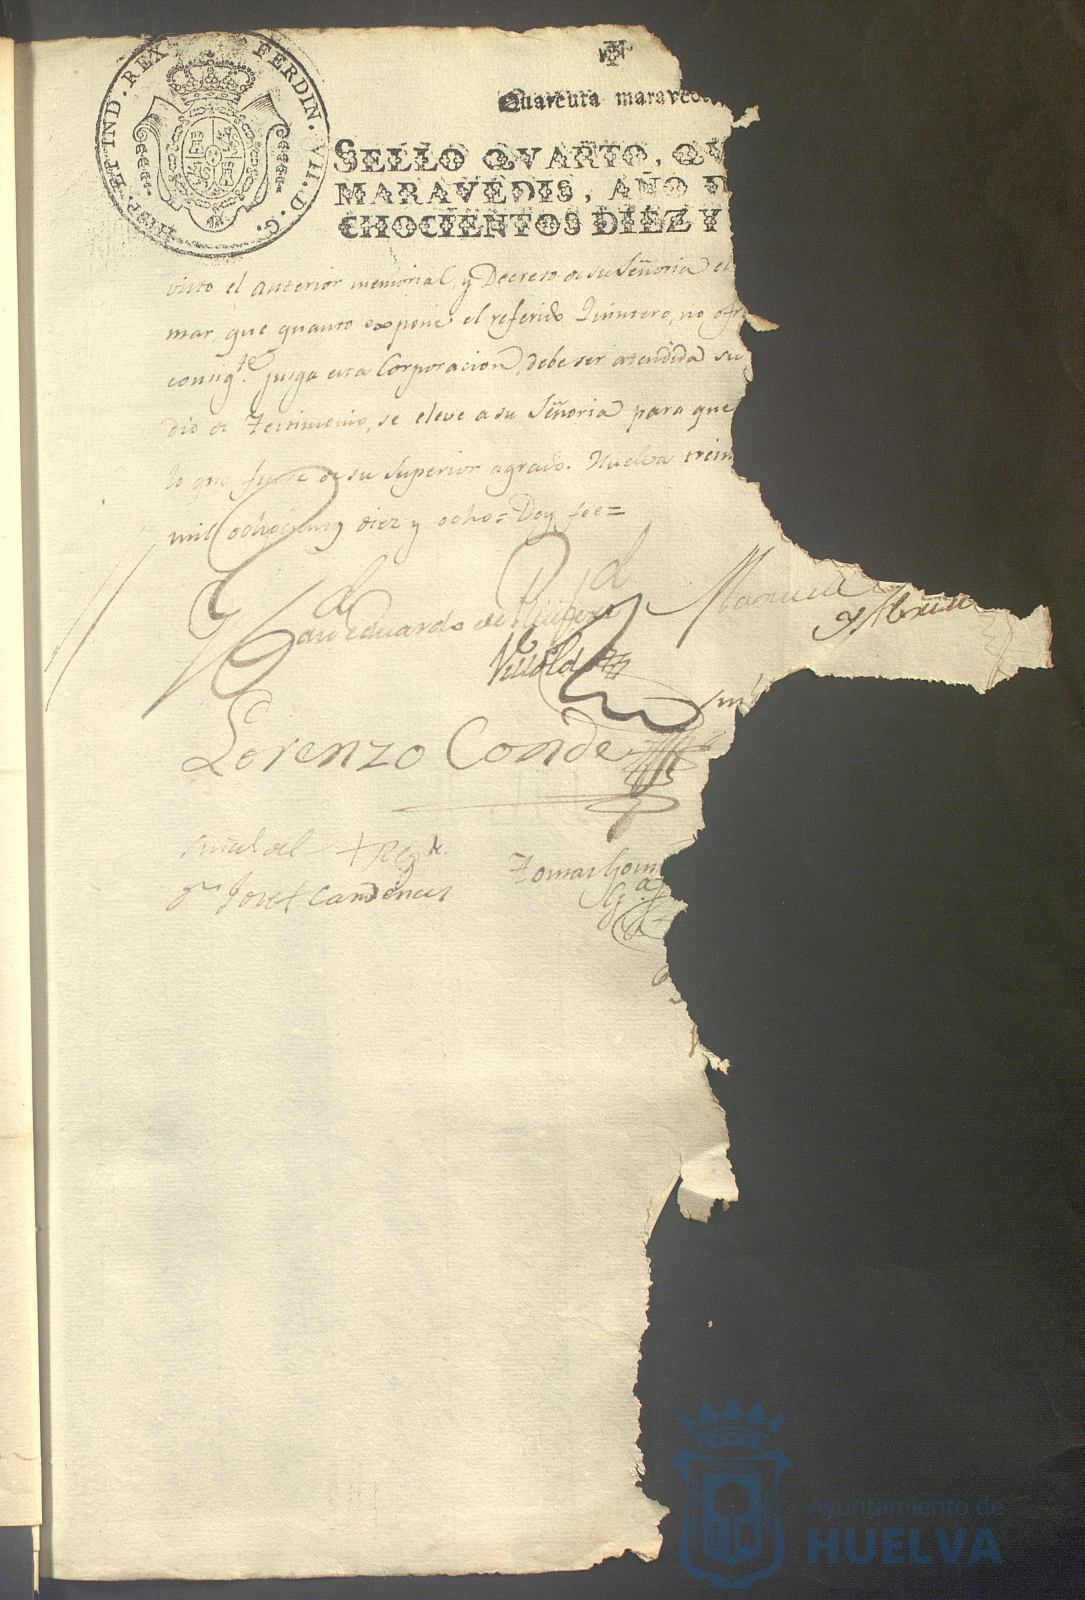 HISP. ET IND. REX FERDIN. VII. D. G.
Quarenta maraved
SELLO QVARTO, QV
MARAVEDIS, AÑO D
CHOCIENTOS DIEZ Y
visto el anterior memorial, y Decreto de su Señoria el
mar, que quanto expone el referido Quintero, no ofr
consigte. juzga esta Corporacion, debe ser atendida su
dio de Testimonio, se eleve a su Señoria para que
lo que fuere de su superior agrado. Huelva trein
mil ochocientos diez y ocho = Doy fee =
Eduardo de
Manuel
y Abreu
Lorenzo Conde
señal del + Regr.
Josef Cardenas
Tomas Gom
Ayuntamiento de
HUELVA